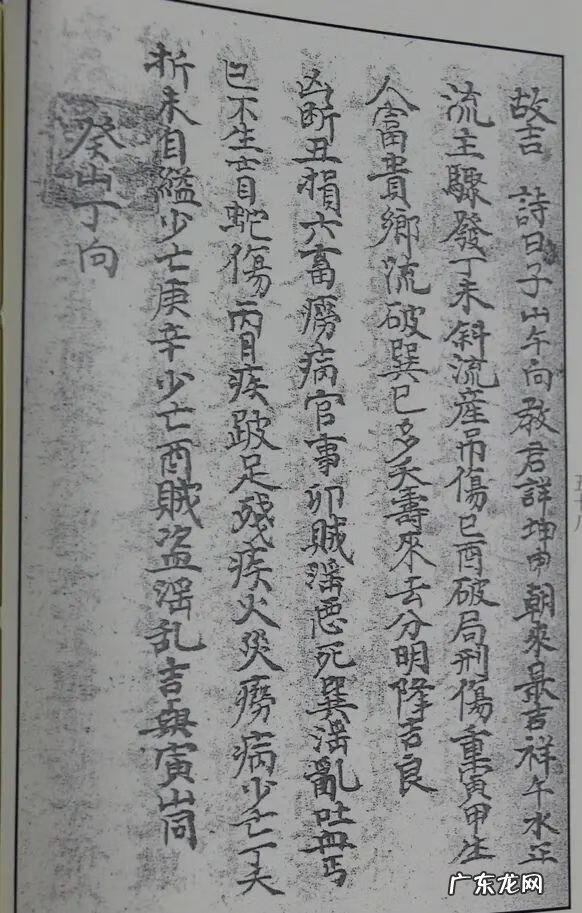 故吉 詩曰子山午向教君詳坤申朝來最吉祥午水正
流主驟發丁未斜流産吊傷巳酉破局刑傷重寅甲生
人富貴鄉流破巽巳多夭壽來去分明降吉良
凶断丑損六畜癆病官事卯賊淫惡死巽淫亂吐血丐
巳不生育蛇傷丙目疾跛足殘疾火災癆病少亡丁夭
折未自縊少亡庚辛少亡酉賊盗淫乱吉與寅山同
癸山丁向
五十八
广东龙网
GDLONG.COM